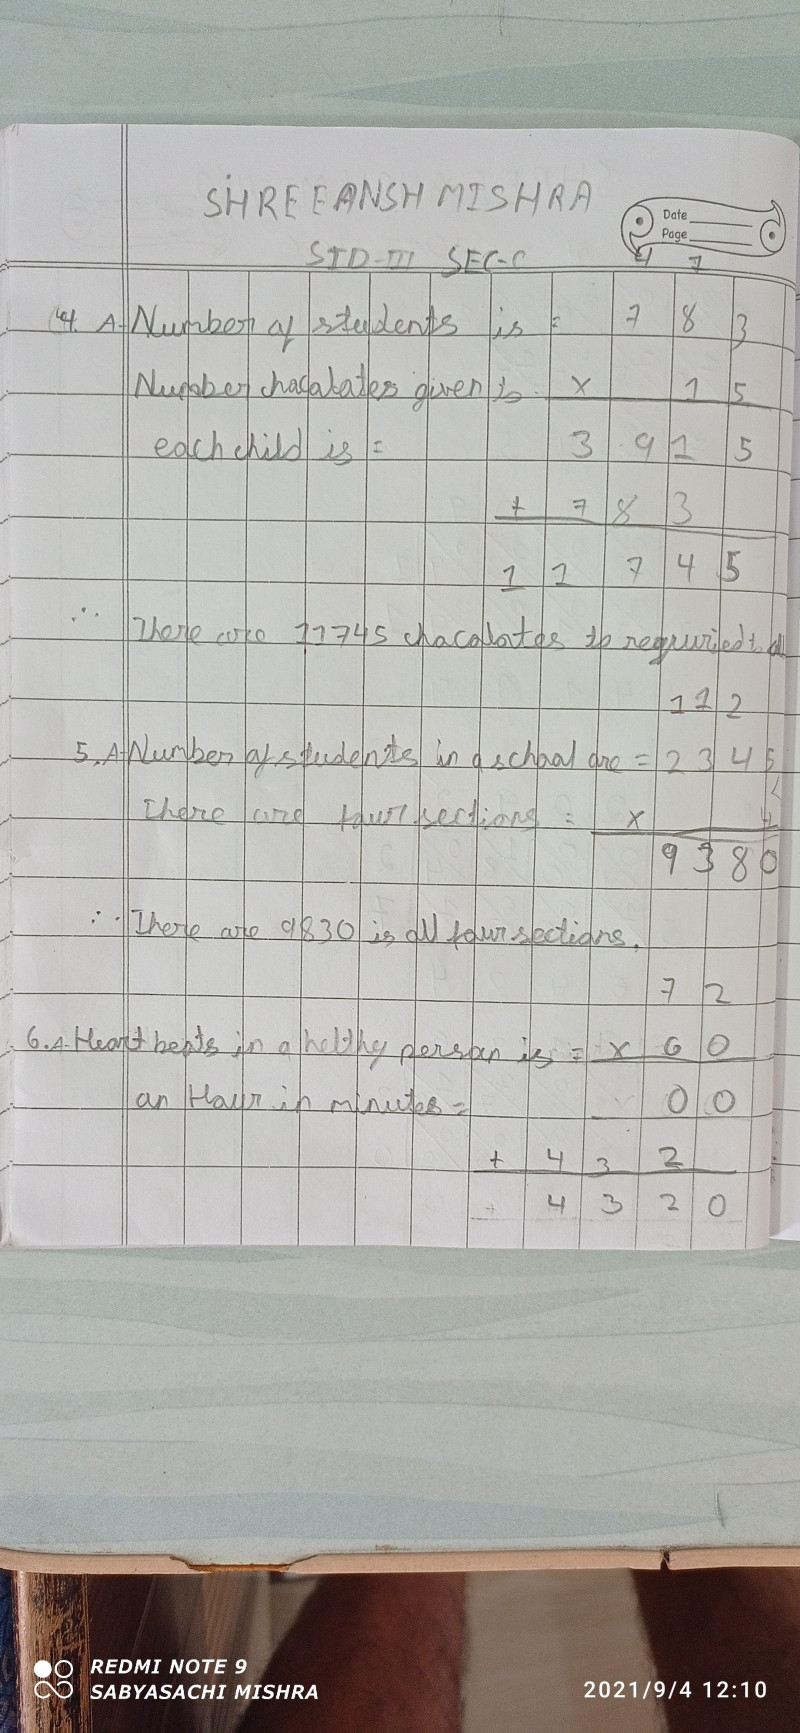 SHREEANSH MISHRA
Date
Page
STD-III SEC-C
4 7
4. A. Number of students is = 7 8 3
Number chacalates given to × 1 5
each child is = 3 9 1 5
+ 7 8 3
1 1 7 4 5
∴ There are 11745 chacalates
1 1 2
5. A. Number of students in a schaal are = 2 3 4 5
There are four sections = × 4
9 3 8 0
∴ There are 9830 is all four sections.
7 2
6. A. Heart beats in a helthy person is = × 6 0
an Haur in minutes = 0 0
+ 4 3 2
4 3 2 0
REDMI NOTE 9
SABYASACHI MISHRA
2021/9/4 12:10